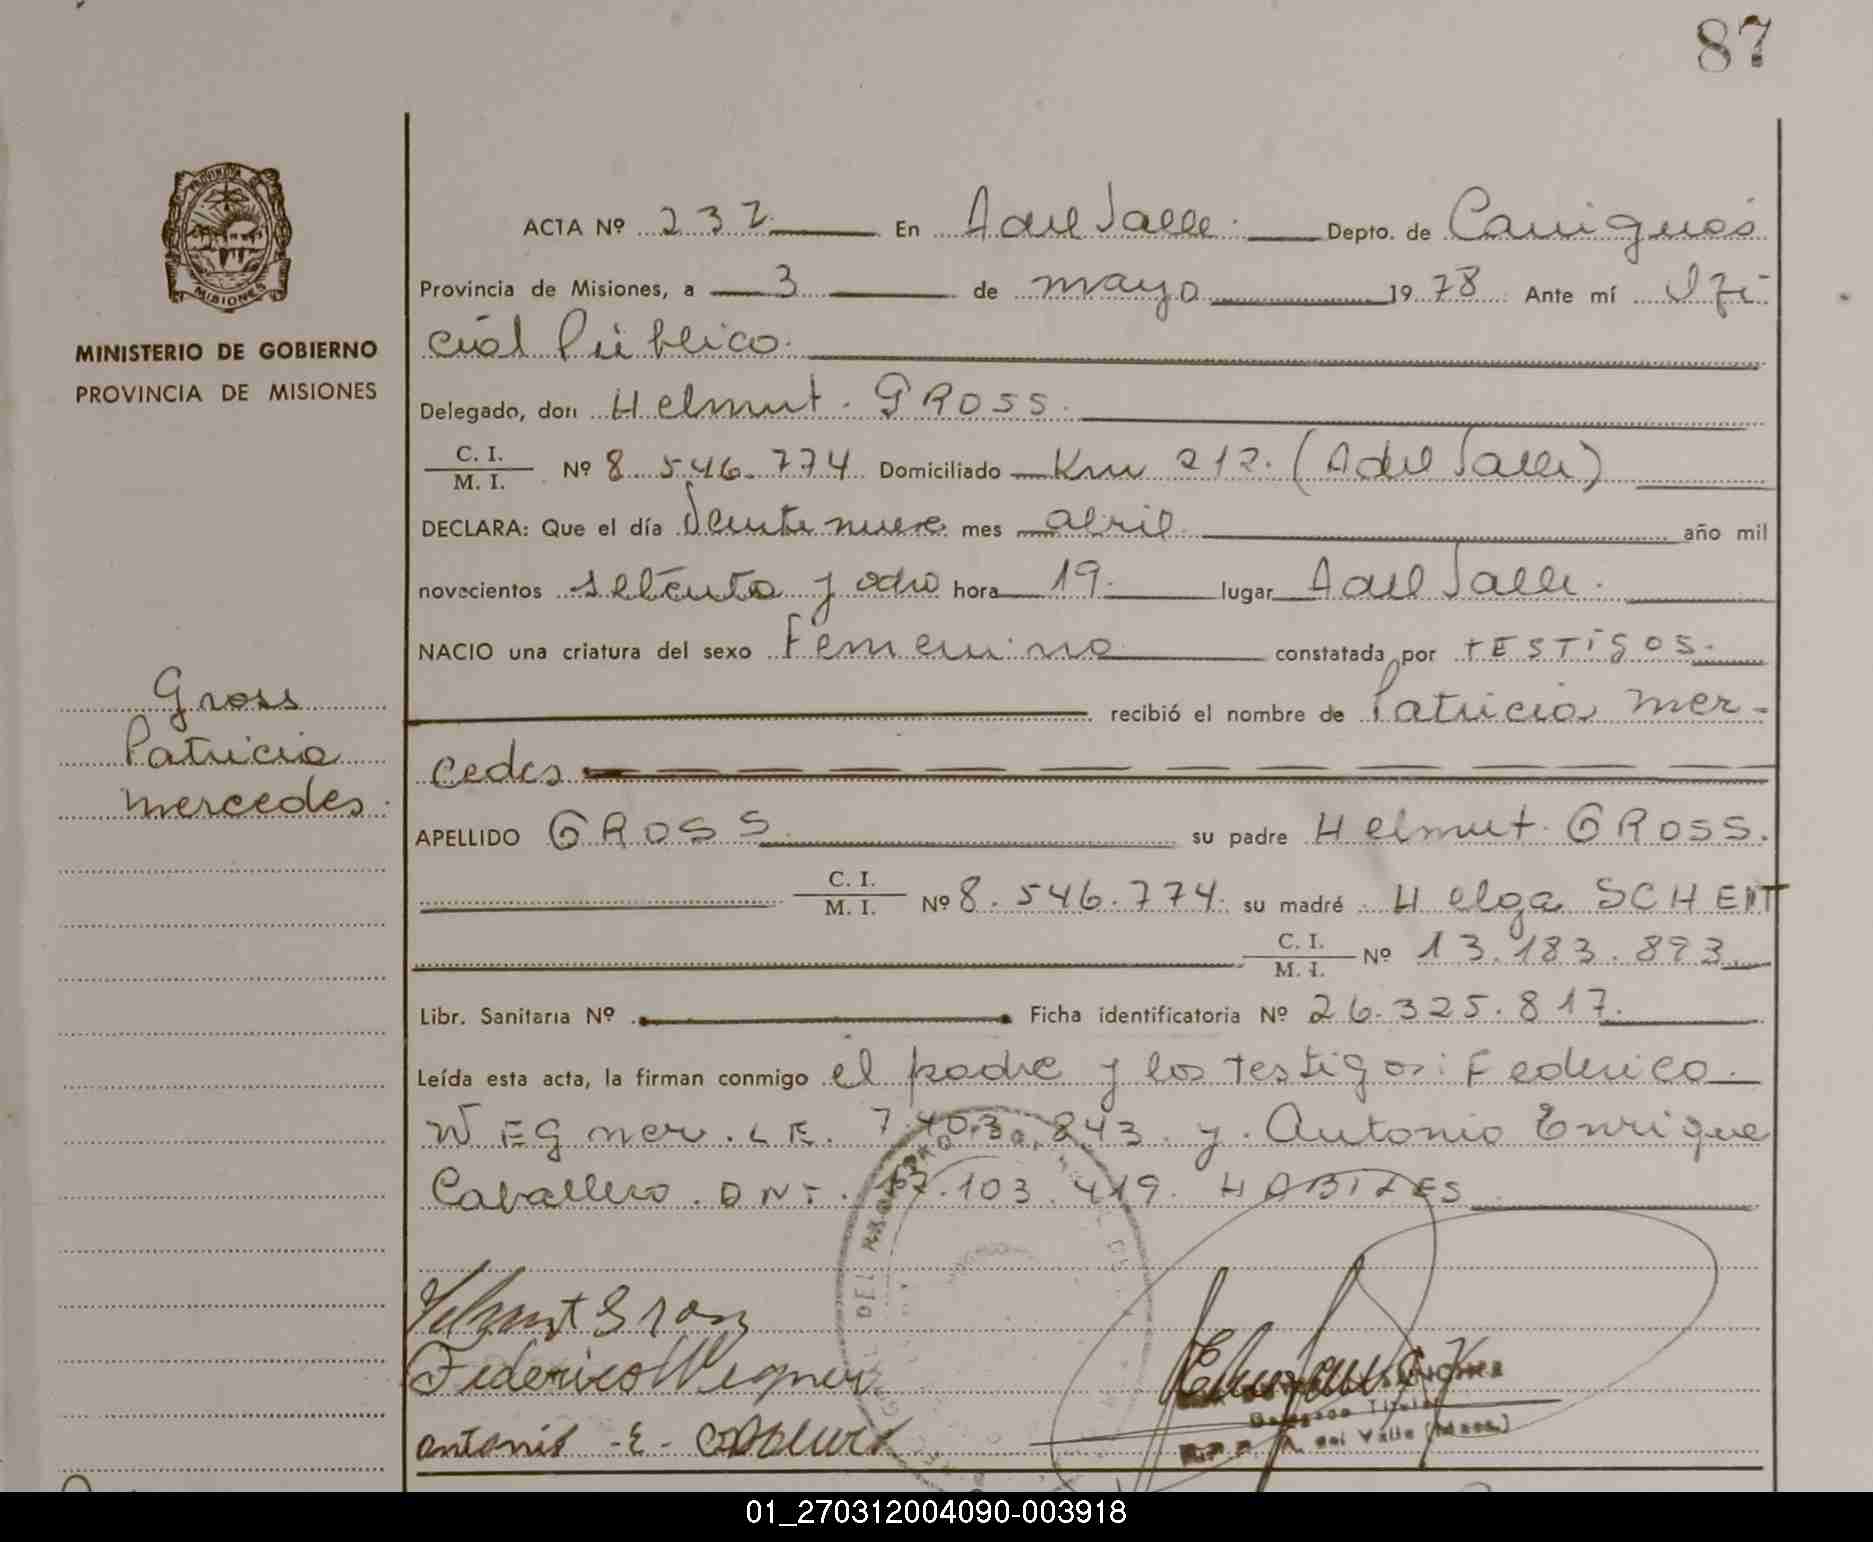 87
ACTA Nº 232 En A del Valle. Depto. de Cainguás
Provincia de Misiones, a 3 de mayo 1978 Ante mí Ofi-
MINISTERIO DE GOBIERNO
PROVINCIA DE MISIONES
cial Público.
Delegado, don Helmut. GROSS.
C. I. / M. I. Nº 8.546.774 Domiciliado Km 212. (A del Valle)
DECLARA: Que el día Veinte nueve mes abril. año mil
novecientos setenta y ocho hora 19. lugar A del Valle.
NACIO una criatura del sexo Femenino constatada por TESTIGOS.
recibió el nombre de Patricia Mer-
cedes
Gross
Patricia
Mercedes.
APELLIDO GROSS su padre Helmut. GROSS.
C. I. / M. I. Nº 8.546.774. su madre Helga SCHENT
C. I. / M. I. Nº 13.183.893.
Libr. Sanitaria Nº Ficha identificatoria Nº 26.325.817.
Leída esta acta, la firman conmigo el padre y los testigos: Federico
WEGner. L E. 7.403.843. y. Antonio Enrique
Caballero. DNI. 103.419. HABILES
Helmut Gross
Federico Wegner
Antonio -E-
Delegado Titular
A. del Valle (Mnes.)
01_270312004090-003918